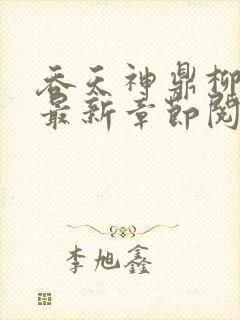 吞天神鼎柳
最新章节阅
李旭鑫